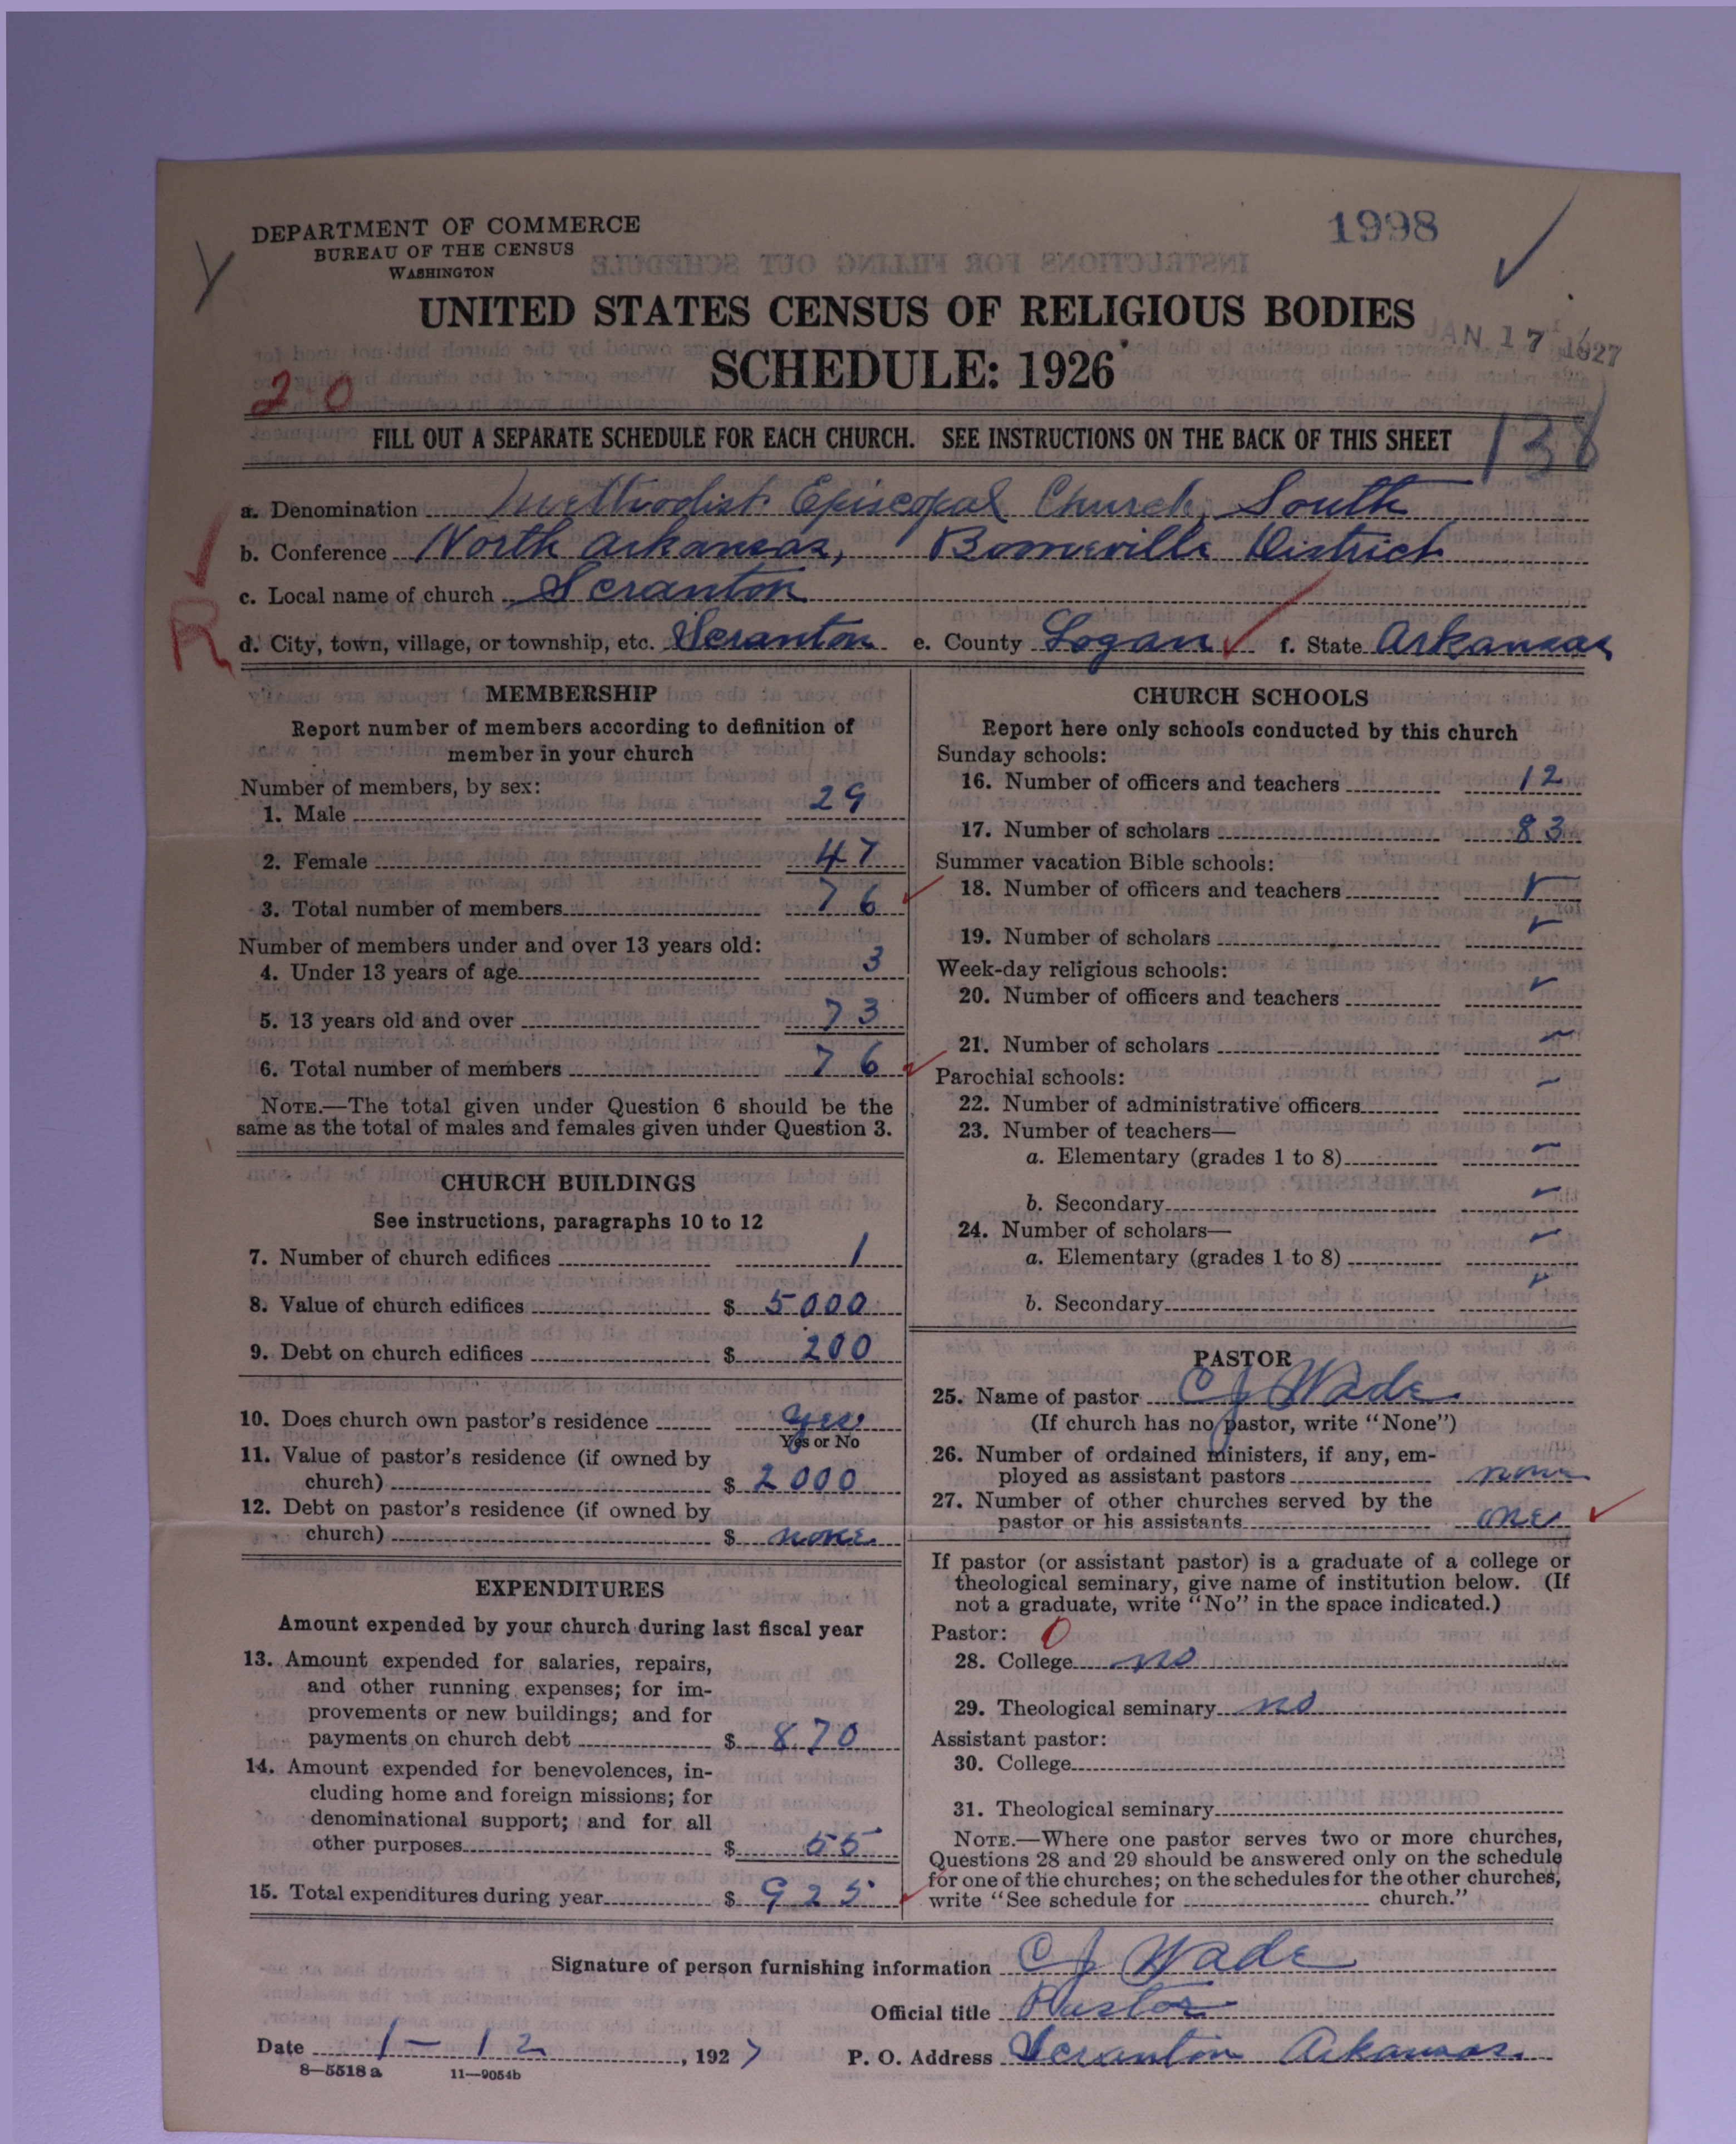 1998
DEPARTMENT OF COMMERCE
BUREAU OF THE CENSUS
WASHINGTON
UNITED STATES CENSUS OF RELIGIOUS BODIES
JAN 17 1927
SCHEDULE: 1926
20
138
FILL OUT A SEPARATE SCHEDULE FOR EACH CHURCH. SEE INSTRUCTIONS ON THE BACK OF THIS SHEET
a. Denomination Methodist Episcopal Church, South
b. Conference North Arkansas, Booneville District
c. Local name of church Scranton
R
d. City, town, village, or township, etc. Scranton e. County Logan f. State Arkansas
MEMBERSHIP
Report number of members according to definition of
member in your church
Number of members, by sex:
1. Male 29
2. Female 47
3. Total number of members 76
Number of members under and over 13 years old:
4. Under 13 years of age 3
5. 13 years old and over 73
6. Total number of members 76
NOTE.—The total given under Question 6 should be the
same as the total of males and females given under Question 3.
CHURCH BUILDINGS
See instructions, paragraphs 10 to 12
7. Number of church edifices 1
8. Value of church edifices $ 5000
9. Debt on church edifices $ 200
10. Does church own pastor's residence yes
Yes or No
11. Value of pastor's residence (if owned by
church) $ 2000
12. Debt on pastor's residence (if owned by
church) $ none
EXPENDITURES
Amount expended by your church during last fiscal year
13. Amount expended for salaries, repairs,
and other running expenses; for im-
provements or new buildings; and for
payments on church debt $ 870
14. Amount expended for benevolences, in-
cluding home and foreign missions; for
denominational support; and for all
other purposes $ 55
15. Total expenditures during year $ 925
CHURCH SCHOOLS
Report here only schools conducted by this church
Sunday schools:
16. Number of officers and teachers 12
17. Number of scholars 83
Summer vacation Bible schools:
18. Number of officers and teachers
19. Number of scholars
Week-day religious schools:
20. Number of officers and teachers
21. Number of scholars
Parochial schools:
22. Number of administrative officers
23. Number of teachers—
a. Elementary (grades 1 to 8)
b. Secondary
24. Number of scholars—
a. Elementary (grades 1 to 8)
b. Secondary
PASTOR
25. Name of pastor C J Wade
(If church has no pastor, write "None")
26. Number of ordained ministers, if any, em-
ployed as assistant pastors none
27. Number of other churches served by the
pastor or his assistants one
If pastor (or assistant pastor) is a graduate of a college or
theological seminary, give name of institution below. (If
not a graduate, write "No" in the space indicated.)
Pastor: 0
28. College no
29. Theological seminary no
Assistant pastor:
30. College
31. Theological seminary
NOTE.—Where one pastor serves two or more churches,
Questions 28 and 29 should be answered only on the schedule
for one of the churches; on the schedules for the other churches,
write "See schedule for church."
Signature of person furnishing information C J Wade
Official title Pastor
Date 1-12, 1927 P. O. Address Scranton Arkansas
8—5518 a 11—9054b